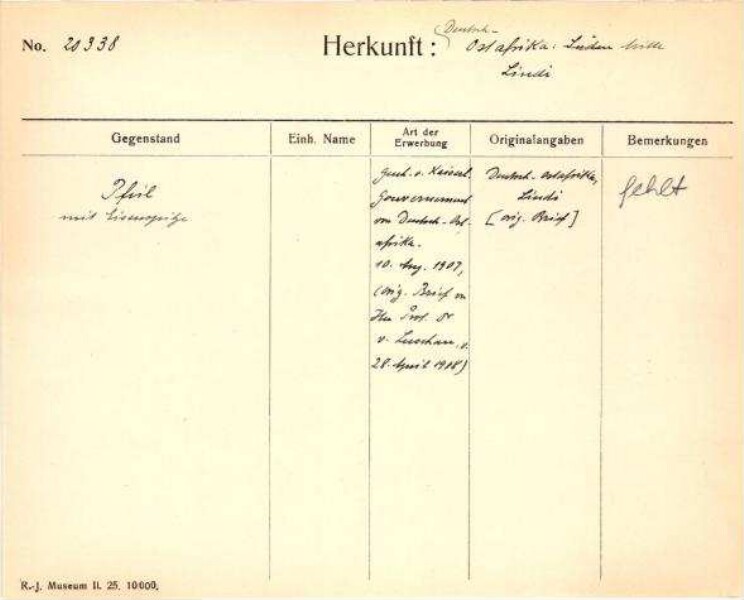 No. 20338
Herkunft: Deutsch-
Ostafrika: Süden
Lindi
Gegenstand
Einh. Name
Art der
Erwerbung
Originalangaben
Bemerkungen
Pfeil
mit Eisenspitze
Gesch. v. Kaiserl.
Gouvernement
von Deutsch-Ost-
afrika.
10. Aug. 1907,
(orig. Brief von
Hn Prof. Dr
v. Luschan, v.
28. April 1908)
Deutsch-Ostafrika,
Lindi
[orig. Brief]
fehlt
R.-J. Museum II. 25. 10000.